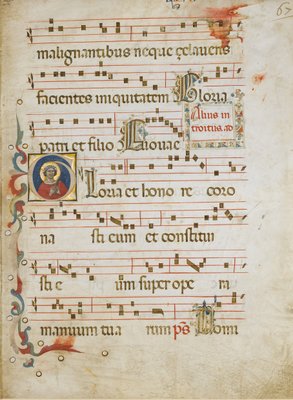 malignantibus neque çelaveris
facientes iniquitatem Gloria
patri et filio Enovae Alius in
troitus. ad
Gloria et hono re coro
na sti eum et constitui
sti e um super ope ra
manuum tua rum ps Domi